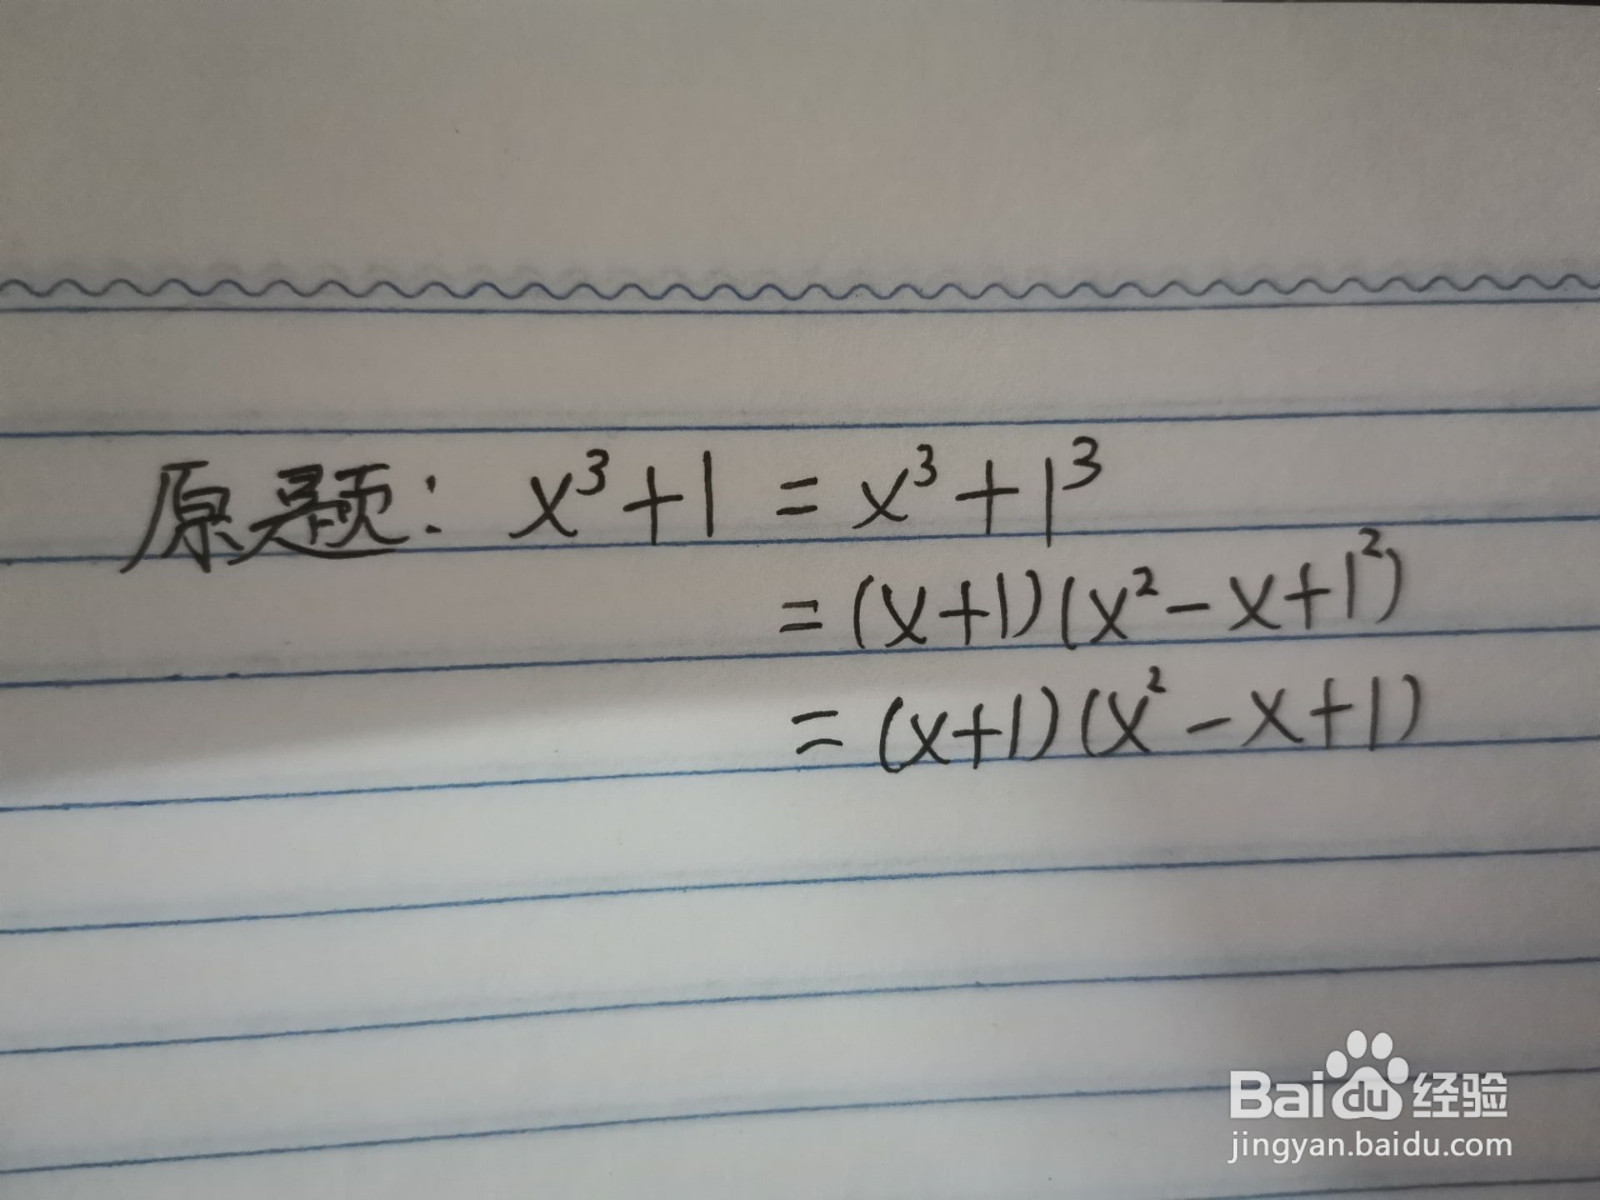 原题: x³+1 = x³+1³
= (x+1)(x²-x+1²)
= (x+1)(x²-x+1)
Baidu 经验
jingyan.baidu.com